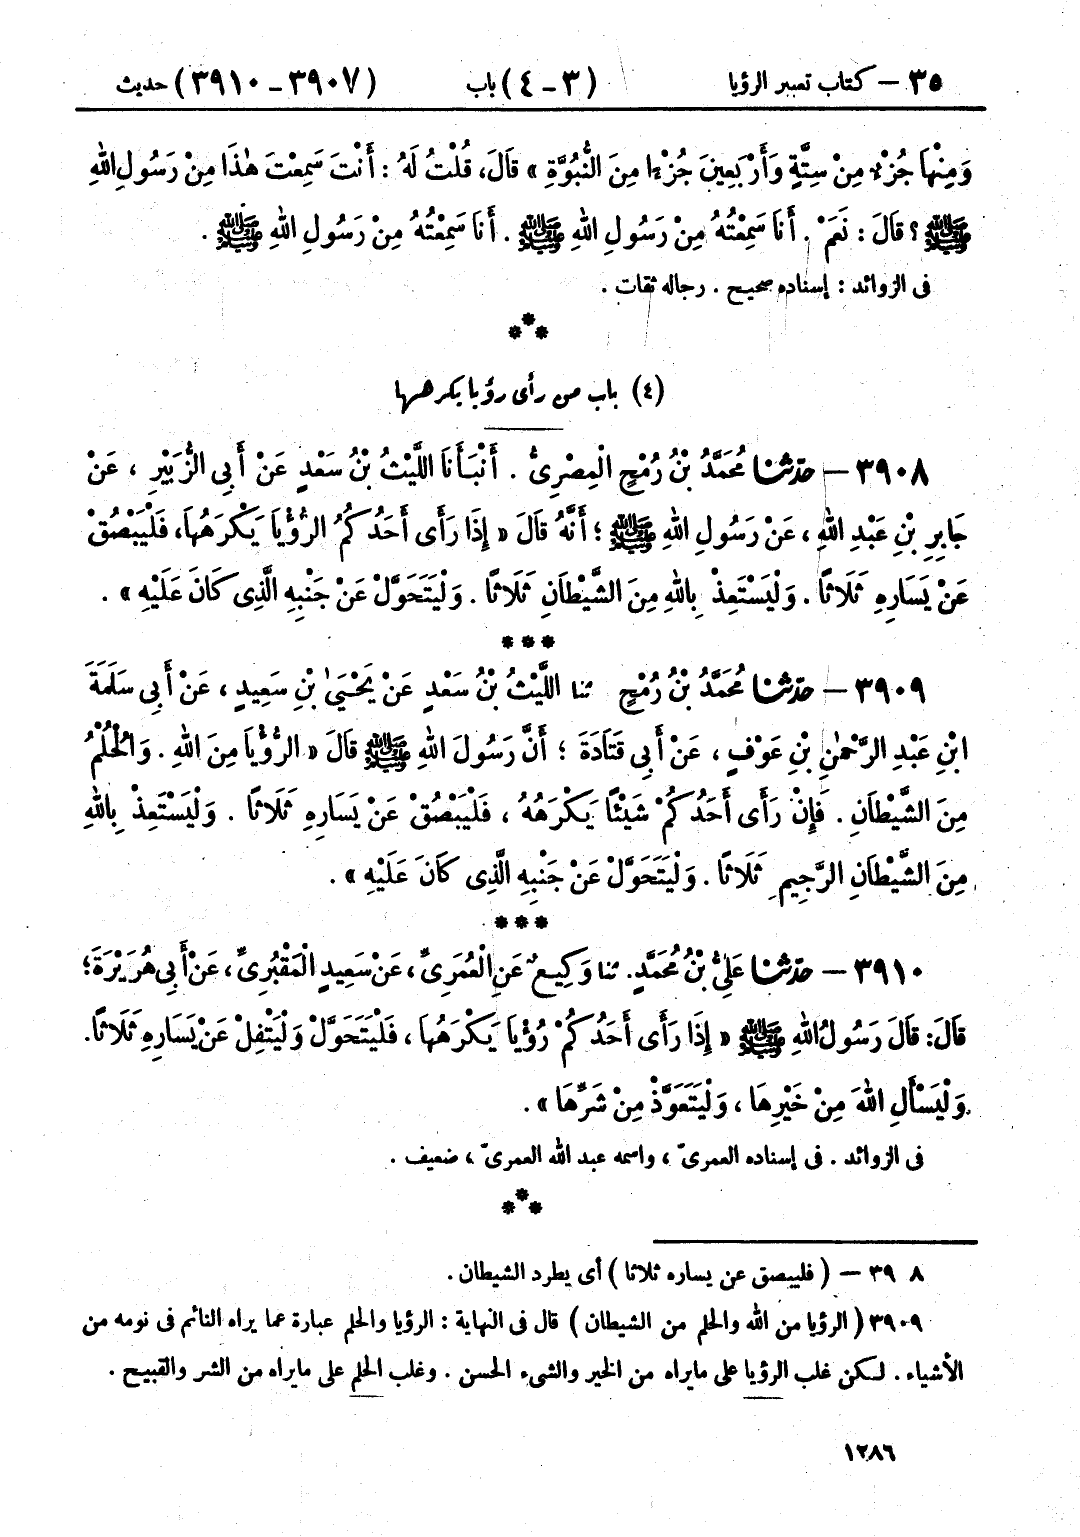 ٣٥ – كتاب تعبير الرؤيا (٣ – ٤) باب (٣٩٠٧ – ٣٩١٠) حديث
وَمِنْهَا جُزْءٌ مِنْ سِتَّةٍ وَأَرْبَعِينَ جُزْءًا مِنَ النُّبُوَّةِ » قَالَ، قُلْتُ لَهُ : أَنْتَ سَمِعْتَ هٰذَا مِنْ رَسُولِ اللهِ
ﷺ ؟ قَالَ : نَعَمْ . أَنَا سَمِعْتُهُ مِنْ رَسُولِ اللهِ ﷺ . أَنَا سَمِعْتُهُ مِنْ رَسُولِ اللهِ ﷺ .
فى الزوائد : إسناده صحيح . رجاله ثقات .
***
(٤) باب من رأى رؤيا يكرهها
٣٩٠٨ – حدّثنا مُحَمَّدُ بْنُ رُمْحٍ الْمِصْرِىُّ . أَنْبَأَنَا اللَّيْثُ بْنُ سَعْدٍ عَنْ أَبِى الزُّبَيْرِ ، عَنْ
جَابِرِ بْنِ عَبْدِ اللهِ ، عَنْ رَسُولِ اللهِ ﷺ ؛ أَنَّهُ قَالَ « إِذَا رَأَى أَحَدُكُمُ الرُّؤْيَا يَكْرَهُهَا، فَلْيَبْصُقْ
عَنْ يَسَارِهِ ثَلَاثًا . وَلْيَسْتَعِذْ بِاللهِ مِنَ الشَّيْطَانِ ثَلَاثًا . وَلْيَتَحَوَّلْ عَنْ جَنْبِهِ الَّذِى كَانَ عَلَيْهِ » .
***
٣٩٠٩ – حدّثنا مُحَمَّدُ بْنُ رُمْحٍ ثنا اللَّيْثُ بْنُ سَعْدٍ عَنْ يَحْيَىٰ بْنِ سَعِيدٍ ، عَنْ أَبِى سَلَمَةَ
ابْنِ عَبْدِ الرَّحْمٰنِ بْنِ عَوْفٍ ، عَنْ أَبِى قَتَادَةَ ؛ أَنَّ رَسُولَ اللهِ ﷺ قَالَ « الرُّؤْيَا مِنَ اللهِ . وَالْحُلْمُ
مِنَ الشَّيْطَانِ . فَإِنْ رَأَى أَحَدُكُمْ شَيْئًا يَكْرَهُهُ ، فَلْيَبْصُقْ عَنْ يَسَارِهِ ثَلَاثًا . وَلْيَسْتَعِذْ بِاللهِ
مِنَ الشَّيْطَانِ الرَّجِيمِ ثَلَاثًا . وَلْيَتَحَوَّلْ عَنْ جَنْبِهِ الَّذِى كَانَ عَلَيْهِ » .
***
٣٩١٠ – حدّثنا عَلِىُّ بْنُ مُحَمَّدٍ. ثنا وَكِيعٌ عَنِ الْعُمَرِىِّ ، عَنْ سَعِيدٍ الْمَقْبُرِىِّ ، عَنْ أَبِى هُرَيْرَةَ ؛
قَالَ: قَالَ رَسُولُ اللهِ ﷺ « إِذَا رَأَى أَحَدُكُمْ رُؤْيَا يَكْرَهُهَا ، فَلْيَتَحَوَّلْ وَلْيَتْفِلْ عَنْ يَسَارِهِ ثَلَاثًا .
وَلْيَسْأَلِ اللهَ مِنْ خَيْرِهَا ، وَلْيَتَعَوَّذْ مِنْ شَرِّهَا » .
فى الزوائد . فى إسناده العمرىّ ، واسمه عبد الله العمرىّ ، ضعيف .
***
٣٩ ٨ – ( فليبصق عن يساره ثلاثا ) أى يطرد الشيطان .
٣٩٠٩ ( الرؤيا من الله والحلم من الشيطان ) قال فى النهاية : الرؤيا والحلم عبارة عما يراه النائم فى نومه من
الأشياء . لكن غلب الرؤيا على مايراه من الخير والشىء الحسن . وغلب الحلم على مايراه من الشر والقبيح .
١٢٨٦